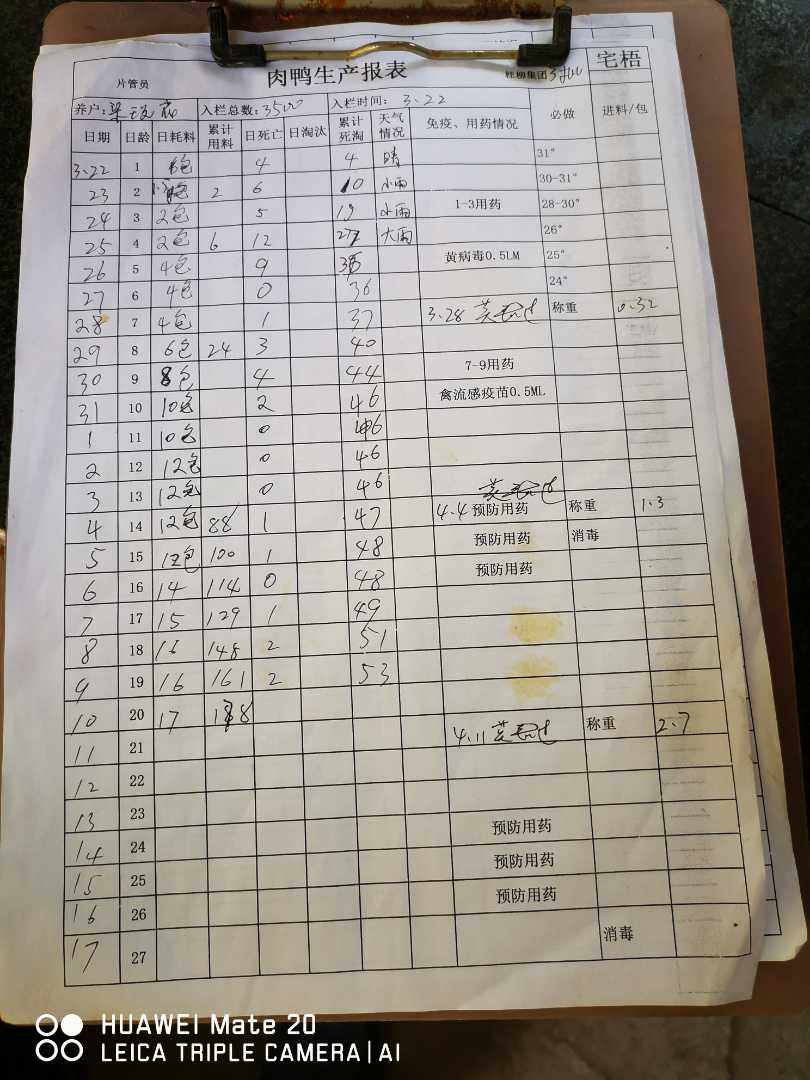 宅梧
肉鸭生产报表
片管员 桂柳集团
养户: 入栏总数: 3500 入栏时间: 3.22
日期 日龄 日耗料 累计用料 日死亡 日淘汰 累计死淘 天气情况 免疫、用药情况 必做 进料/包
3.22 1 4 4 晴 31°
23 2 2 6 10 小雨 30-31°
24 3 2包 5 小雨 1-3用药 28-30°
25 4 2包 6 12 27 大雨 26°
26 5 4包 9 黄病毒0.5LM 25°
27 6 4包 0 36 24°
28 7 4包 1 37 3.28 称重 0.32
29 8 6包 24 3 40
30 9 8包 4 44 7-9用药
31 10 10包 2 46 禽流感疫苗0.5ML
1 11 10包 0 46
2 12 12包 0 46
3 13 12包 0 46
4 14 12包 88 1 47 4.4 预防用药 称重 1.3
5 15 12包 100 1 48 预防用药 消毒
6 16 14 114 0 48 预防用药
7 17 15 129 1 49
8 18 16 148 2 51
9 19 16 161 2 53
10 20 17
11 21 4.11 称重 2.7
12 22
13 23
14 24 预防用药
15 25 预防用药
16 26 预防用药
17 27 消毒
HUAWEI Mate 20
LEICA TRIPLE CAMERA | AI